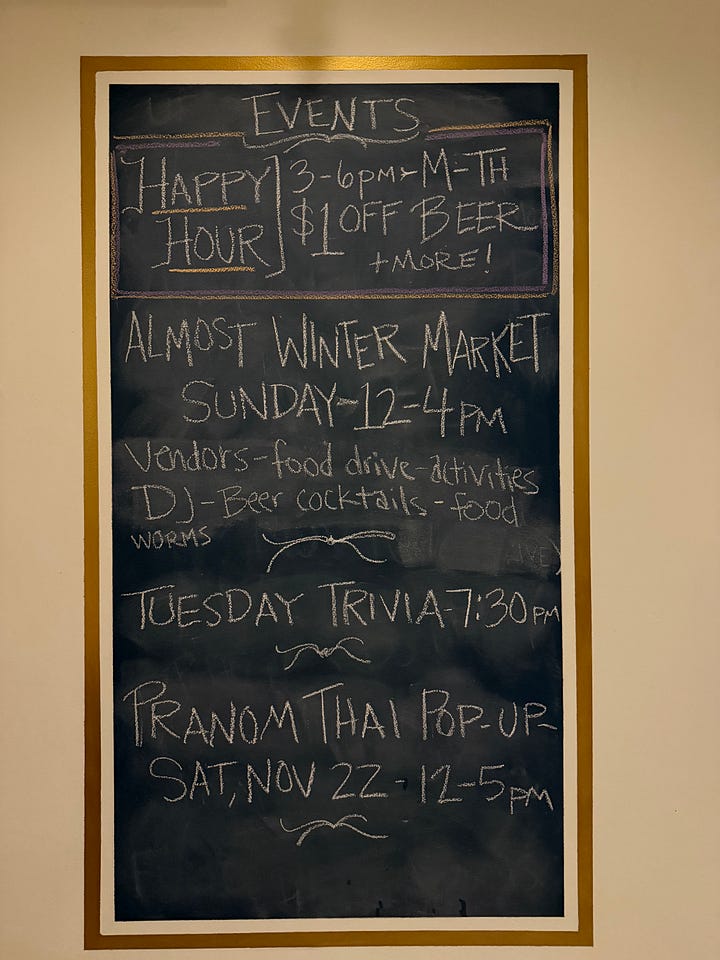 EVENTS
HAPPY HOUR
3-6pm M-TH
$1 OFF BEER
+MORE!
ALMOST WINTER MARKET
SUNDAY-12-4PM
Vendors-food drive-activities
DJ-Beer cocktails-food
WORMS
TUESDAY TRIVIA-7:30PM
PRANOM THAI POP-UP-
SAT, NOV 22-12-5pm